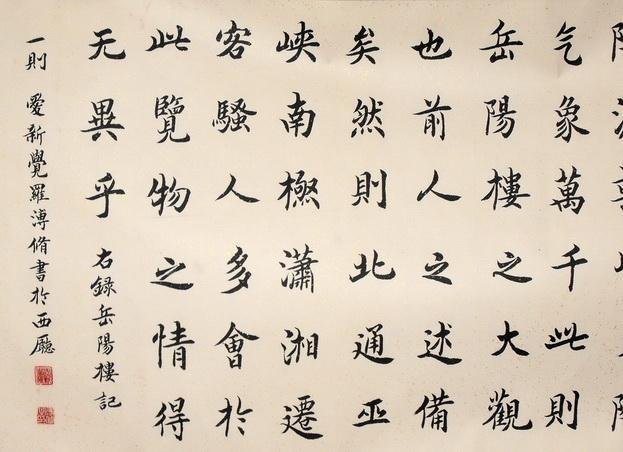 气象萬千此則
岳陽樓之大觀
也前人之述備
矣然則北通巫
峽南極瀟湘遷
客騷人多會於
此覽物之情得
无異乎 右録岳陽樓記
一則 愛新覺羅溥脩書於西廳